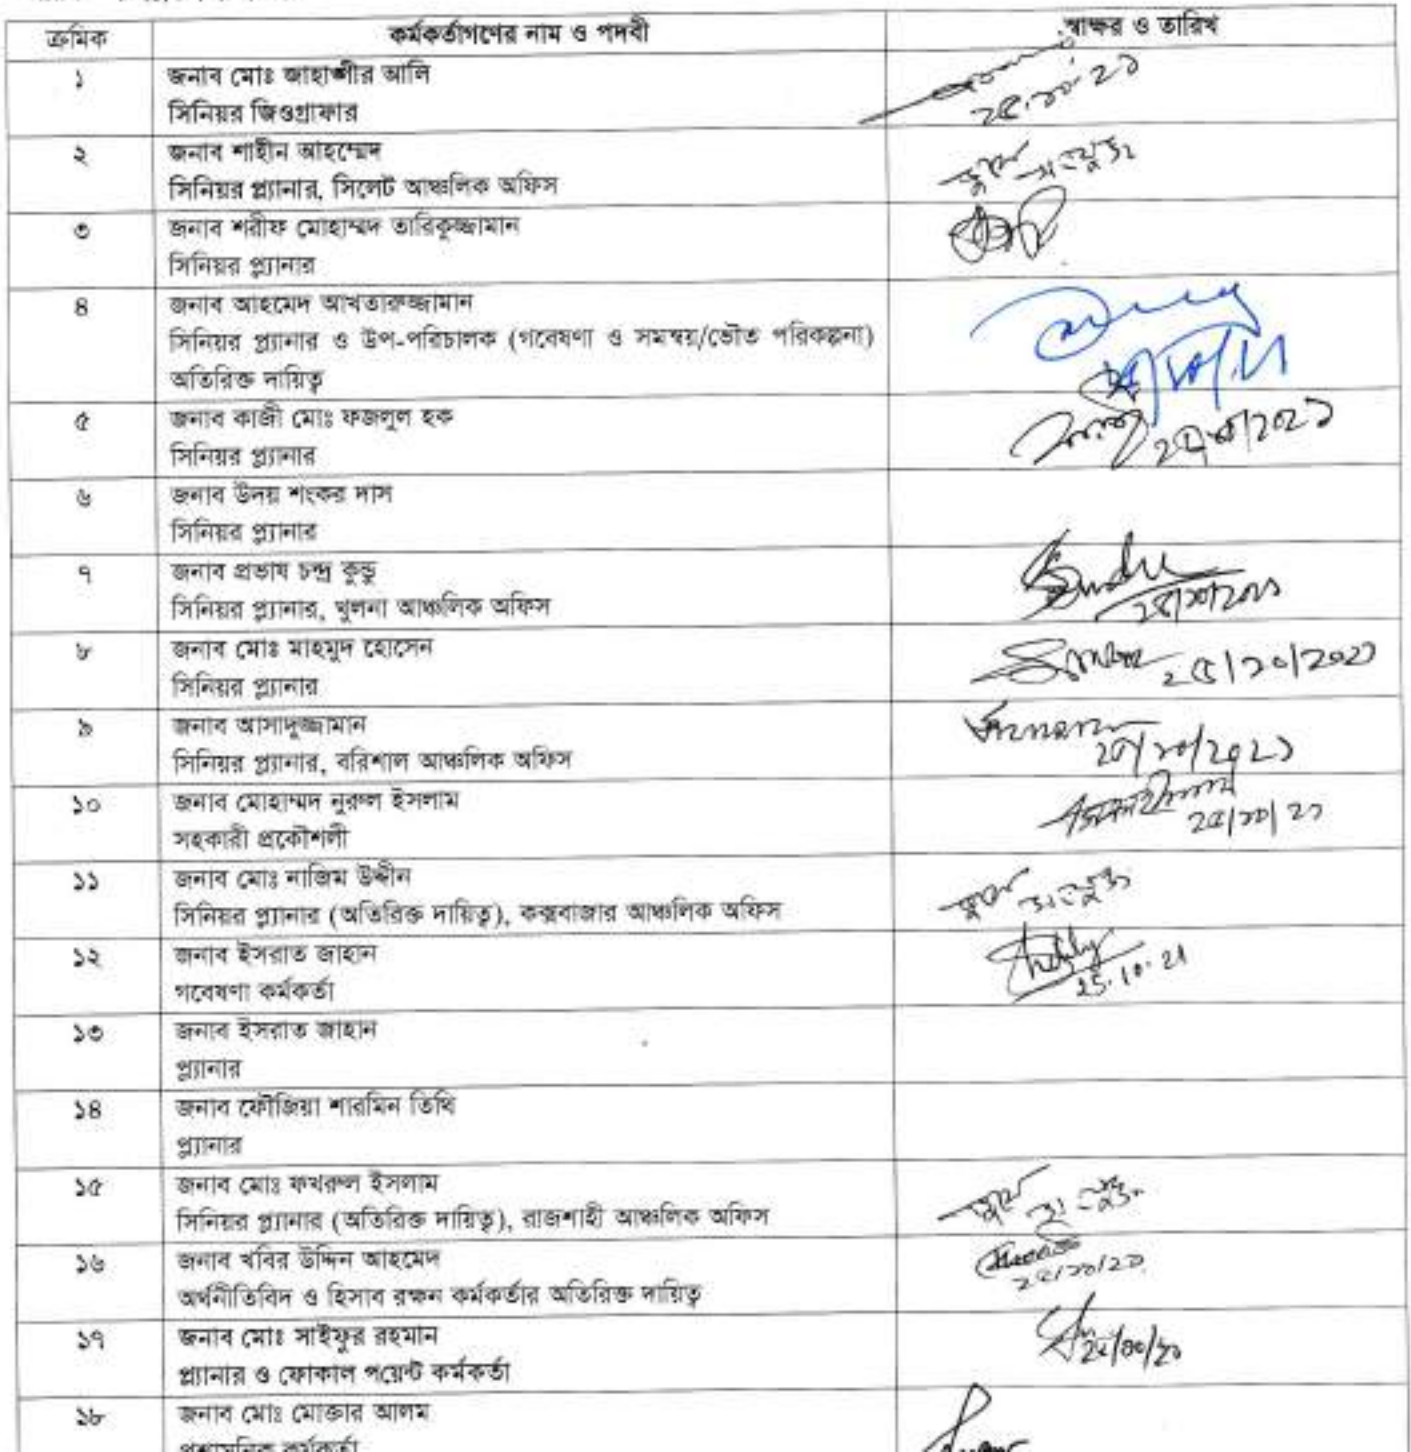 ক্রমিক কর্মকর্তাগণের নাম ও পদবী স্বাক্ষর ও তারিখ
১ জনাব মোঃ জাহাঙ্গীর আলি
সিনিয়র জিওগ্রাফার
২৫.১০.২১
২ জনাব শাহীন আহম্মেদ
সিনিয়র প্ল্যানার, সিলেট আঞ্চলিক অফিস
৩ জনাব শরীফ মোহাম্মদ তারিকুজ্জামান
সিনিয়র প্ল্যানার
৪ জনাব আহমেদ আখতারুজ্জামান
সিনিয়র প্ল্যানার ও উপ-পরিচালক (গবেষণা ও সমন্বয়/ভৌত পরিকল্পনা)
অতিরিক্ত দায়িত্ব
৫ জনাব কাজী মোঃ ফজলুল হক
সিনিয়র প্ল্যানার
৬ জনাব উদয় শংকর দাস
সিনিয়র প্ল্যানার
৭ জনাব প্রভাষ চন্দ্র কুন্ডু
সিনিয়র প্ল্যানার, খুলনা আঞ্চলিক অফিস
২৫/১০/২০২১
৮ জনাব মোঃ মাহমুদ হোসেন
সিনিয়র প্ল্যানার
২৫/১০/২০২১
৯ জনাব আসাদুজ্জামান
সিনিয়র প্ল্যানার, বরিশাল আঞ্চলিক অফিস
২৫/১০/২০২১
১০ জনাব মোহাম্মদ নুরুল ইসলাম
সহকারী প্রকৌশলী
২৫/১০/২১
১১ জনাব মোঃ নাজিম উদ্দীন
সিনিয়র প্ল্যানার (অতিরিক্ত দায়িত্ব), কক্সবাজার আঞ্চলিক অফিস
১২ জনাব ইসরাত জাহান
গবেষণা কর্মকর্তা
25.10.21
১৩ জনাব ইসরাত জাহান
প্ল্যানার
১৪ জনাব ফৌজিয়া শারমিন তিথি
প্ল্যানার
১৫ জনাব মোঃ ফখরুল ইসলাম
সিনিয়র প্ল্যানার (অতিরিক্ত দায়িত্ব), রাজশাহী আঞ্চলিক অফিস
১৬ জনাব খবির উদ্দিন আহমেদ
অর্থনীতিবিদ ও হিসাব রক্ষন কর্মকর্তার অতিরিক্ত দায়িত্ব
২৫/১০/২১
১৭ জনাব মোঃ সাইফুর রহমান
প্ল্যানার ও ফোকাল পয়েন্ট কর্মকর্তা
১৮ জনাব মোঃ মোক্তার আলম
প্রশাসনিক কর্মকর্তা